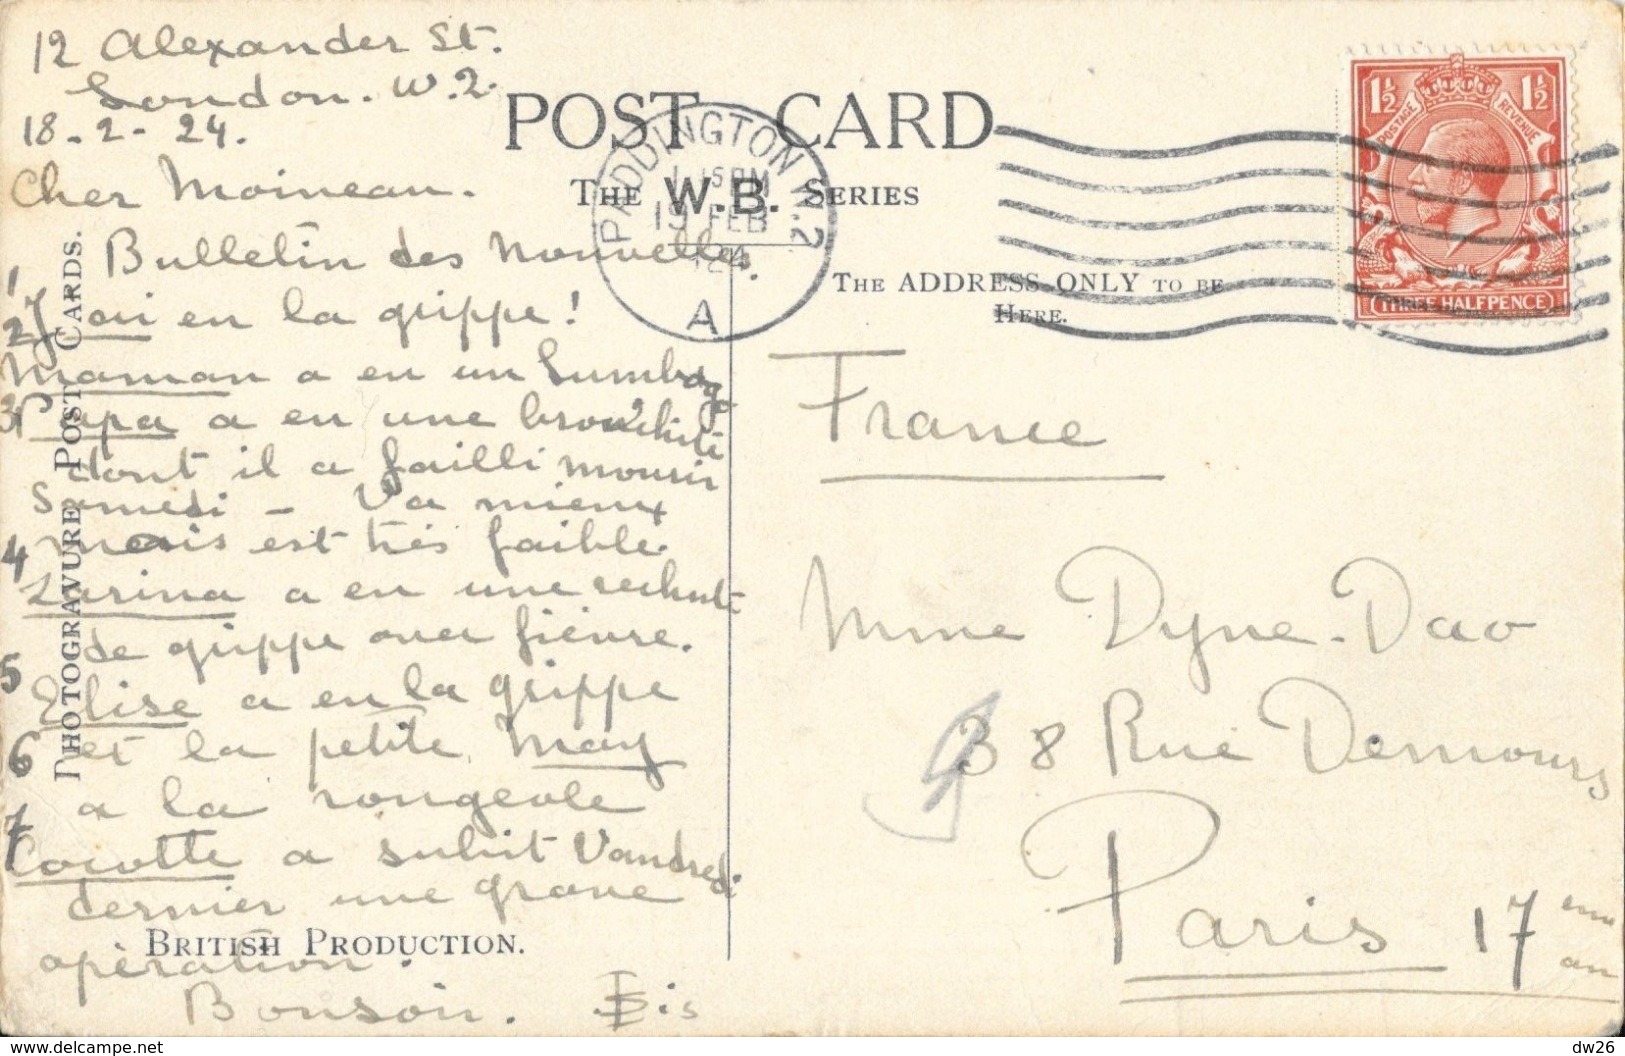 12 Alexander St.
London. W.2.
18-2-24.
Cher Moineau.
Bulletin des Nouvelles.
1 J'ai eu la grippe!
2 Maman a eu un Lumbago
3 Papa a eu une bronchite
dont il a failli mourir
Samedi - Va mieux
mais est très faible.
4 Zarina a eu une rechute
de grippe avec fièvre.
5 Elise a eu la grippe
6 et la petite May
a la rougeole
7 Cocotte a subit Vandredi
dernier une grave
opération.
Bonsoir. Isis
POST CARD
THE W.B. SERIES
THE ADDRESS ONLY TO BE
HERE.
PADDINGTON W.2
15 PM
19 FEB
24
A
POSTAGE REVENUE
1½ 1½
THREE HALFPENCE
France
Mme Dyne-Dao
38 Rue Demours
Paris 17 eme
arr
PHOTOGRAVURE POST CARDS.
BRITISH PRODUCTION.
delcampe.net
dw26